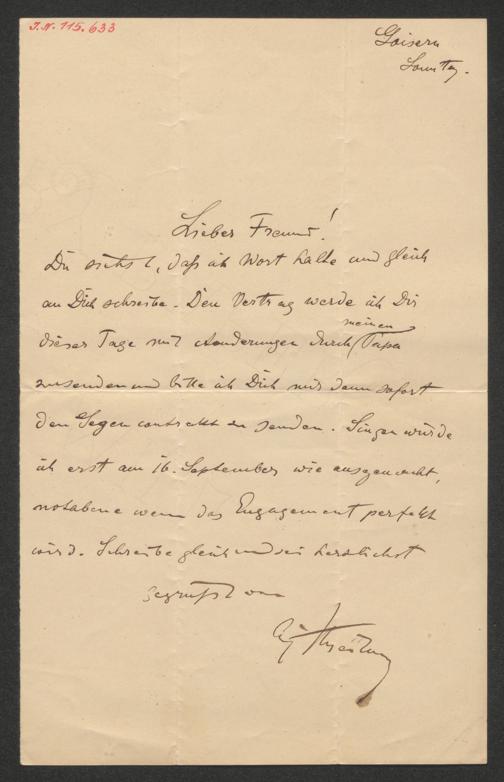 J.N. 115.633
Goisern
Sonntag.
Lieber Freund!
Du siehst, daß ich Wort halte und gleich
an Dich schreibe. Den Vertrag werde ich Dir
dieser Tage mit Aenderungen durch meinen Papa
zusenden und bitte ich Dich mir dann sofort
den Gegencontrakt zu senden. Singen würde
ich erst am 16. September wie ausgemacht,
notabene wenn das Engagement perfekt
wird. Schreibe gleich und sei herzlichst
gegrüßt von